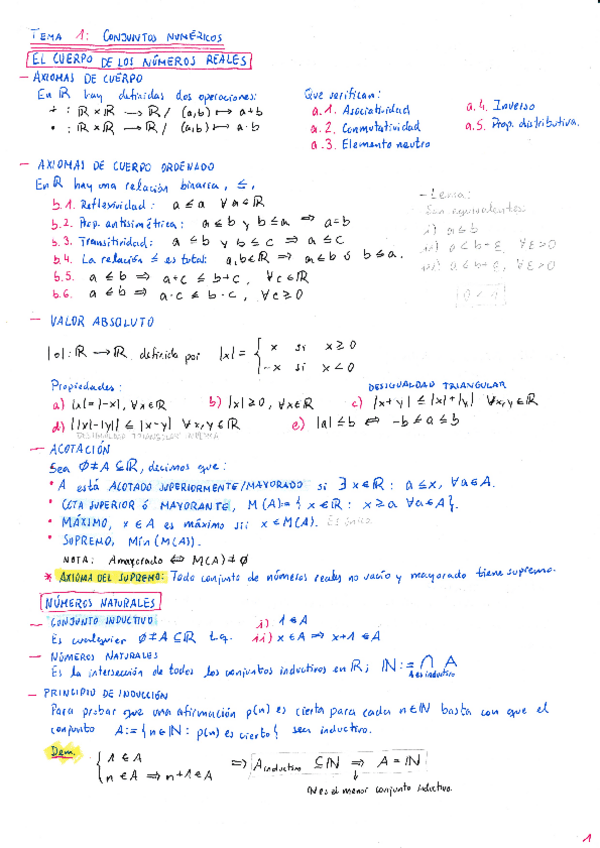 TEMA 1: CONJUNTOS NUMÉRICOS
EL CUERPO DE LOS NÚMEROS REALES
— AXIOMAS DE CUERPO
En ℝ hay definidas dos operaciones: Que verifican:
+ : ℝ × ℝ → ℝ / (a,b) ↦ a+b a.1. Asociatividad a.4. Inverso
• : ℝ × ℝ → ℝ / (a,b) ↦ a·b a.2. Conmutatividad a.5. Prop. distributiva.
a.3. Elemento neutro
— AXIOMAS DE CUERPO ORDENADO
En ℝ hay una relación binaria, ≤,
b.1. Reflexividad: a ≤ a ∀a∈ℝ
b.2. Prop. antisimétrica: a ≤ b y b ≤ a ⇒ a=b
b.3. Transitividad: a ≤ b y b ≤ c ⇒ a ≤ c
b.4. La relación ≤ es total: a,b∈ℝ ⇒ a ≤ b ó b ≤ a.
b.5. a ≤ b ⇒ a+c ≤ b+c, ∀c∈ℝ
b.6. a ≤ b ⇒ a·c ≤ b·c, ∀c ≥ 0
— Lema:
Son equivalentes:
i) a ≤ b
ii) a < b+ε, ∀ε>0
iii) a ≤ b+ε, ∀ε>0
— VALOR ABSOLUTO
|o|: ℝ → ℝ definida por |x| = { x si x ≥ 0
-x si x < 0
Propiedades: DESIGUALDAD TRIANGULAR
a) |x|=|-x|, ∀x∈ℝ b) |x| ≥ 0, ∀x∈ℝ c) |x+y| ≤ |x|+|y| ∀x,y∈ℝ
d) ||x|-|y|| ≤ |x-y| ∀x,y∈ℝ e) |a| ≤ b ⇔ -b ≤ a ≤ b
DESIGUALDAD TRIANGULAR INVERSA
— ACOTACIÓN
Sea ∅ ≠ A ⊆ ℝ, decimos que:
• A está ACOTADO SUPERIORMENTE/MAYORADO si ∃ x∈ℝ: a ≤ x, ∀a∈A.
• COTA SUPERIOR ó MAYORANTE, M(A)={x∈ℝ: x ≥ a ∀a∈A}.
• MÁXIMO, x∈A es máximo sii x∈M(A). Es único.
• SUPREMO, Mín(M(A)).
NOTA: A mayorado ⇔ M(A) ≠ ∅
* AXIOMA DEL SUPREMO: Todo conjunto de números reales no vacío y mayorado tiene supremo.
NÚMEROS NATURALES
— CONJUNTO INDUCTIVO i) 1∈A
Es cualquier ∅ ≠ A ⊆ ℝ t.q. ii) x∈A ⇒ x+1∈A
— NÚMEROS NATURALES
Es la intersección de todos los conjuntos inductivos en ℝ; ℕ := ∩ A
A es inductivo
— PRINCIPIO DE INDUCCIÓN
Para probar que una afirmación p(n) es cierta para cada n∈ℕ basta con que el
conjunto A:={n∈ℕ: p(n) es cierto} sea inductivo.
Dem.
{ 1∈A
n∈A ⇒ n+1∈A ⇒ A inductivo ⊆ ℕ ⇒ A = ℕ
ℕ es el menor conjunto inductivo.
1